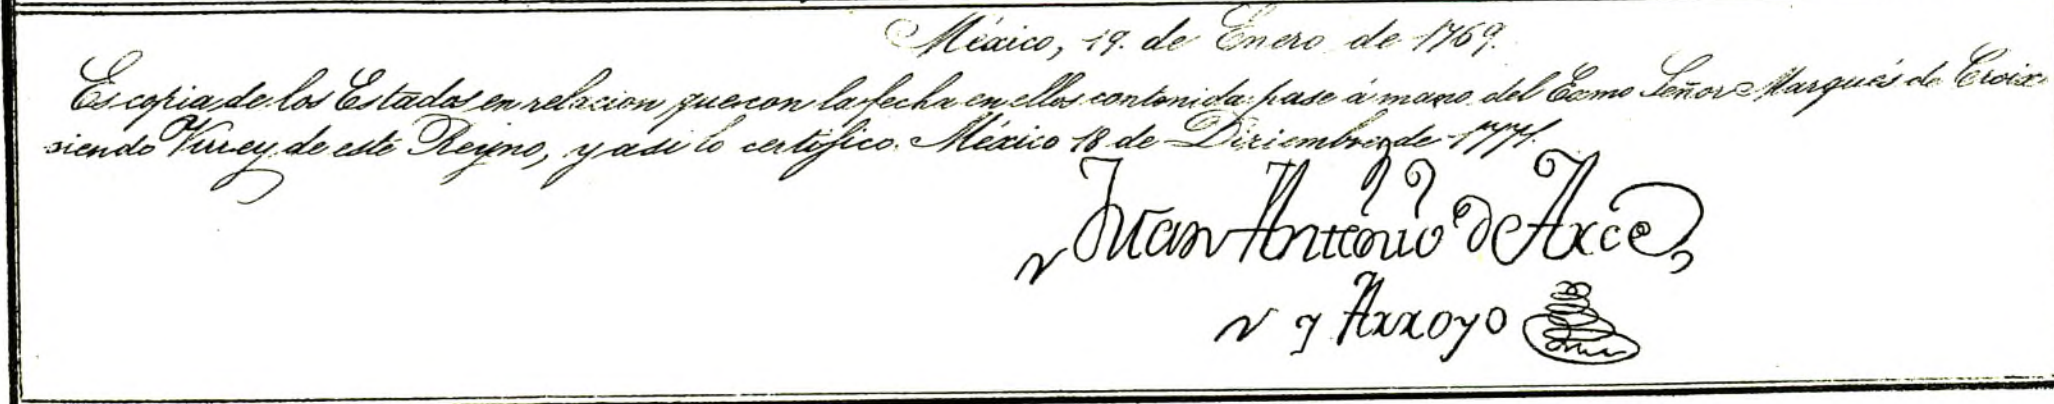 México, 19. de Enero de 1769.
Es copia de los Estados en relacion, que con la fecha en ellos contenida pase á mano del Exmo Señor Marqués de Croix
siendo Virrey de este Reyno, y asi lo certifico. México 18 de Diziembre de 1771.
Juan Antonio de Arce
y Arroyo